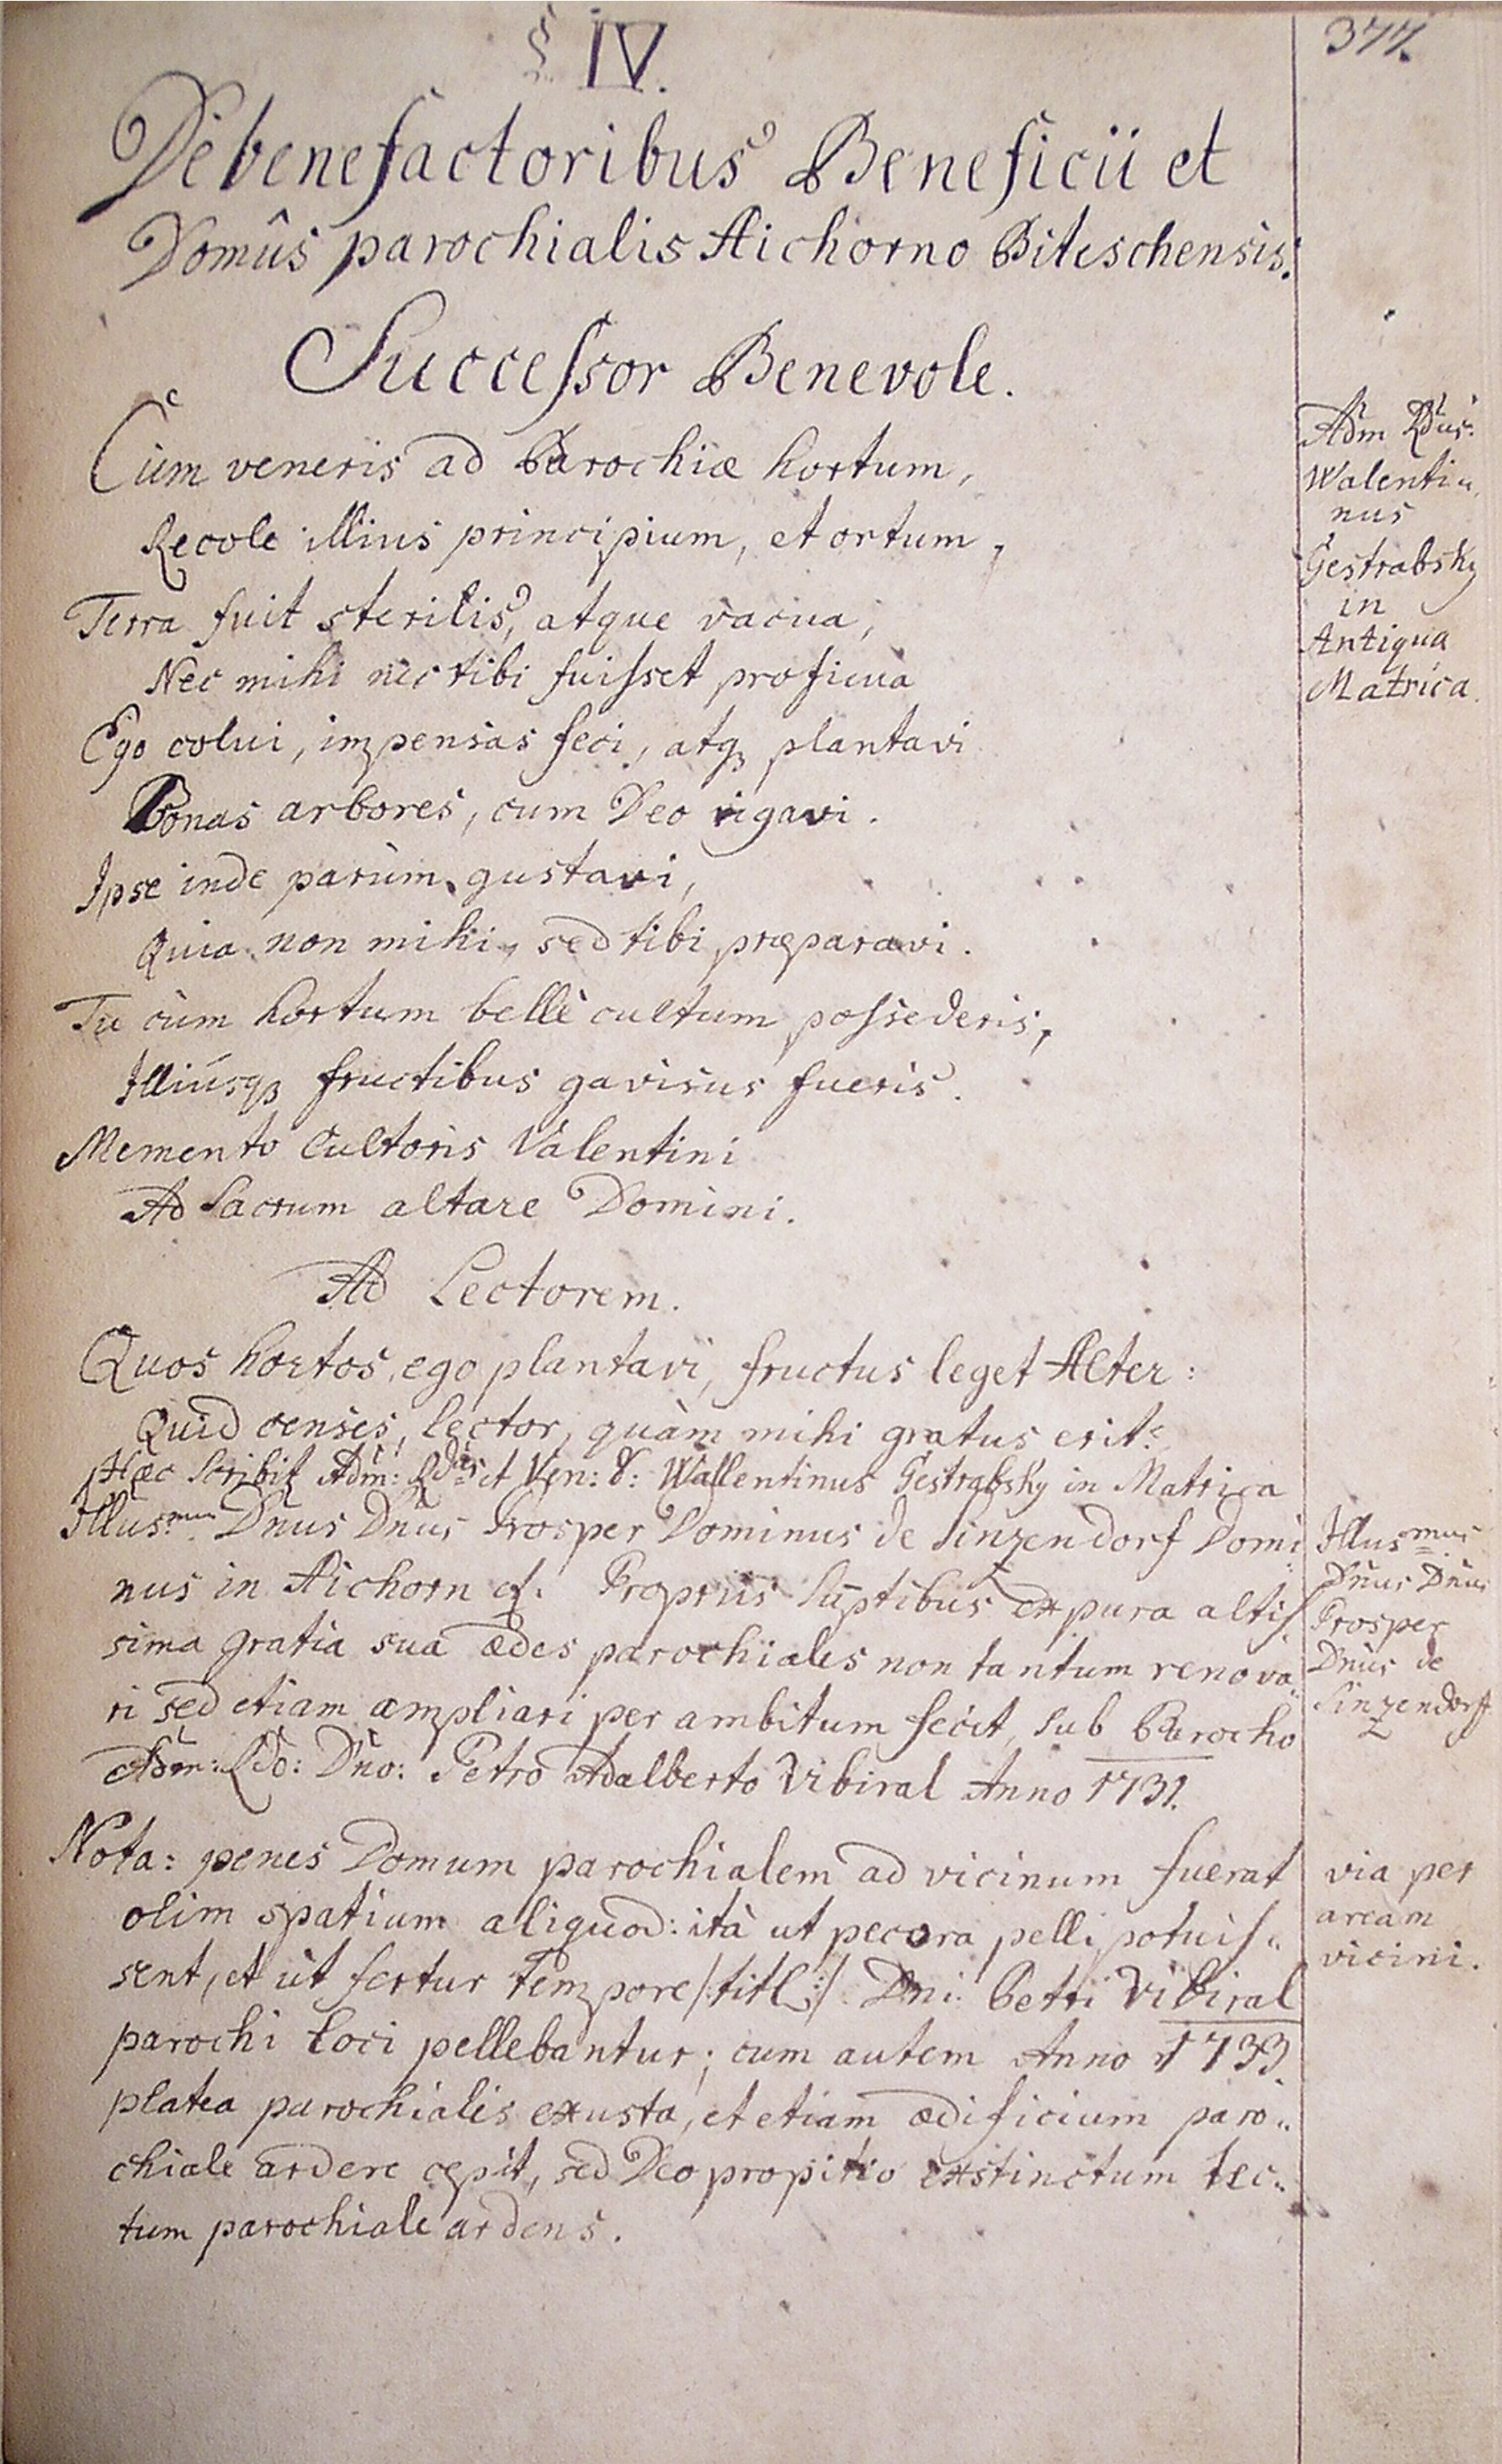 § IV.
377.
De benefactoribus Beneficii et
Domûs parochialis Aichorno Biteschensis.
Successor Benevole.
Cùm veneris ad Parochiæ hortum,
Recole illius principium, et ortum,
Terra fuit sterilis, atque vacua,
Nec mihi nec tibi fuisset proficua
Ego colui, impensas feci, atq plantavi
Bonas arbores, cum Deo rigavi.
Ipse inde parùm gustavi,
Quia non mihi, sed tibi præparavi.
Tu cùm hortum bellè cultum possederis,
Illiúsq fructibus gavisus fueris.
Memento Cultoris Valentini
Ad Sacrum altare Domini.
Adm Rdus:
Walenti„
nus
Gestrabsky
in
Antiqua
Matrica.
Ad Lectorem.
Quos hortos, ego plantavi, fructus leget Alter:
Quid censes, lector, quàm mihi gratus erit?
Hæc scribit Adm: Rdus et Ven: D: Wallentinus Gestrabsky in Matrica
Illusmus Dnus Dnus Prosper Dominus de Sinzendorf Domi
nus in Aichorn Propriis Suptibus ex pura altis
sima gratia sua ædes parochiales non tantum renova„
ri sed etiam ampliari per ambitum fecit, sub Parocho
Adm: Rdo: Dno: Petro Adalberto Vibiral Anno 1731.
Illusmus
Dnus Dnus
Prosper
Dnus de
Sinzendorff
Nota: penes Domum parochialem ad vicinum fuerat
olim spatium aliquod: ità ut pecora pelli potuis„
sent, et ùt fertur tempore /:titl:/ Dni Petri Vibiral
parochi loci pellebantur; cum autem Anno 1733.
platea parochialis exusta, et etiam ædificium paro„
chiale ardere cępit, sed Deo propitio exstinctum tec„
tum parochiale ardens.
via per
aream
vicini.